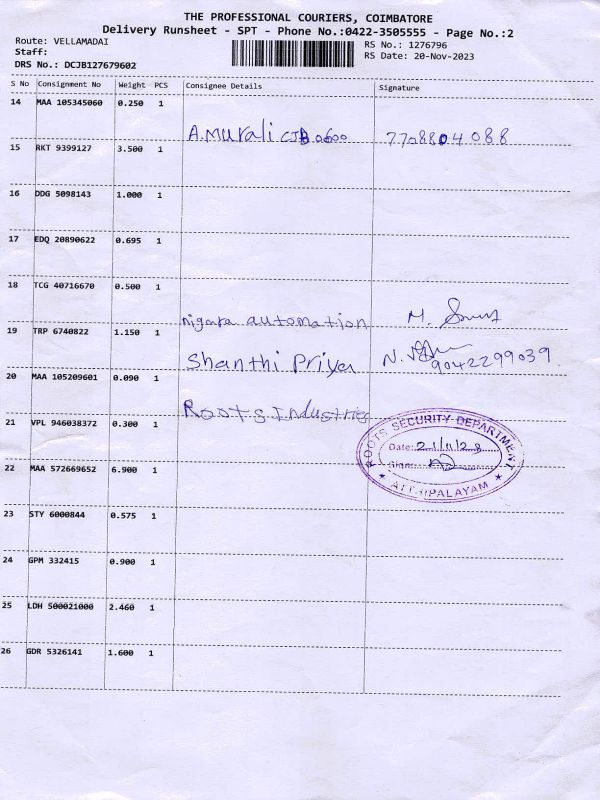 THE PROFESSIONAL COURIERS, COIMBATORE
Delivery Runsheet - SPT - Phone No.:0422-3505555 - Page No.:2
Route: VELLAMADAI
RS No.: 1276796
Staff:
RS Date: 20-Nov-2023
DRS No.: DCJB127679602
S No Consignment No Weight PCS Consignee Details Signature
14 MAA 105345060 0.250 1
A.Murali CJB 0600 7708804088
15 RKT 9399127 3.500 1
16 DDG 5098143 1.000 1
17 EDQ 20890622 0.695 1
18 TCG 40716670 0.500 1
nigara automation M.
19 TRP 6740822 1.150 1
Shanthi Priya N.
9042299039
20 MAA 105209601 0.090 1
Roots Industries
21 VPL 946038372 0.300 1
ROOTS SECURITY DEPARTMENT
Date: 21/11/23
Sign:
★ ATHIPALAYAM ★
22 MAA 572669652 6.900 1
23 STY 6000844 0.575 1
24 GPM 332415 0.900 1
25 LDH 500021000 2.460 1
26 GDR 5326141 1.600 1